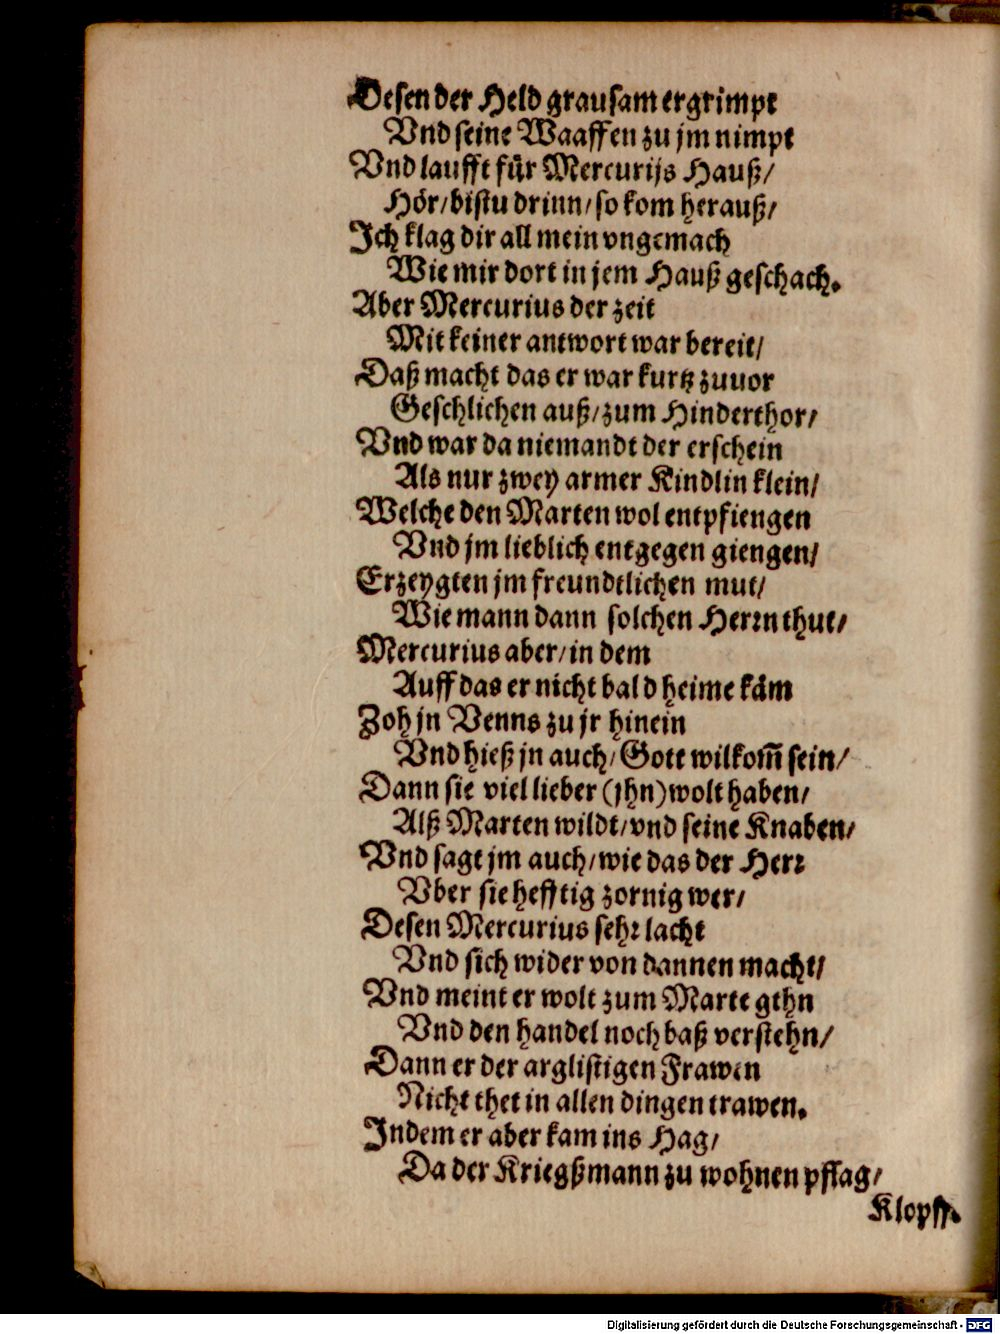 Desen der Held grausam ergrimpt
Vnd seine Waaffen zu jm nimpt
Vnd laufft für Mercurijs Hauß/
Hör/bistu drinn/so kom herauß/
Ich klag dir all mein vngemach
Wie mir dort in jem Hauß geschach.
Aber Mercurius der zeit
Mit keiner antwort war bereit/
Daß macht das er war kurtz zuuor
Geschlichen auß/zum Hinderthor/
Vnd war da niemandt der erschein
Als nur zwey armer Kindlin klein/
Welche den Marten wol entpfiengen
Vnd jm lieblich entgegen giengen/
Erzeygten jm freundtlichen mut/
Wie mann dann solchen Herrn thut/
Mercurius aber/in dem
Auff das er nicht bald heime käm
Zoh jn Venns zu jr hinein
Vnd hieß jn auch/Gott wilkom̃ sein/
Dann sie viel lieber (jhn) wolt haben/
Alß Marten wildt/vnd seine Knaben/
Vnd sagt jm auch/wie das der Herr
Vber sie hefftig zornig wer/
Desen Mercurius sehr lacht
Vnd sich wider von dannen macht/
Vnd meint er wolt zum Marte gehn
Vnd den handel noch baß verstehn/
Dann er der arglistigen Frawen
Nicht thet in allen dingen trawen.
Indem er aber kam ins Hag/
Da der Kriegßmann zu wohnen pflag/
Klopff.
Digitalisierung gefördert durch die Deutsche Forschungsgemeinschaft - DFG